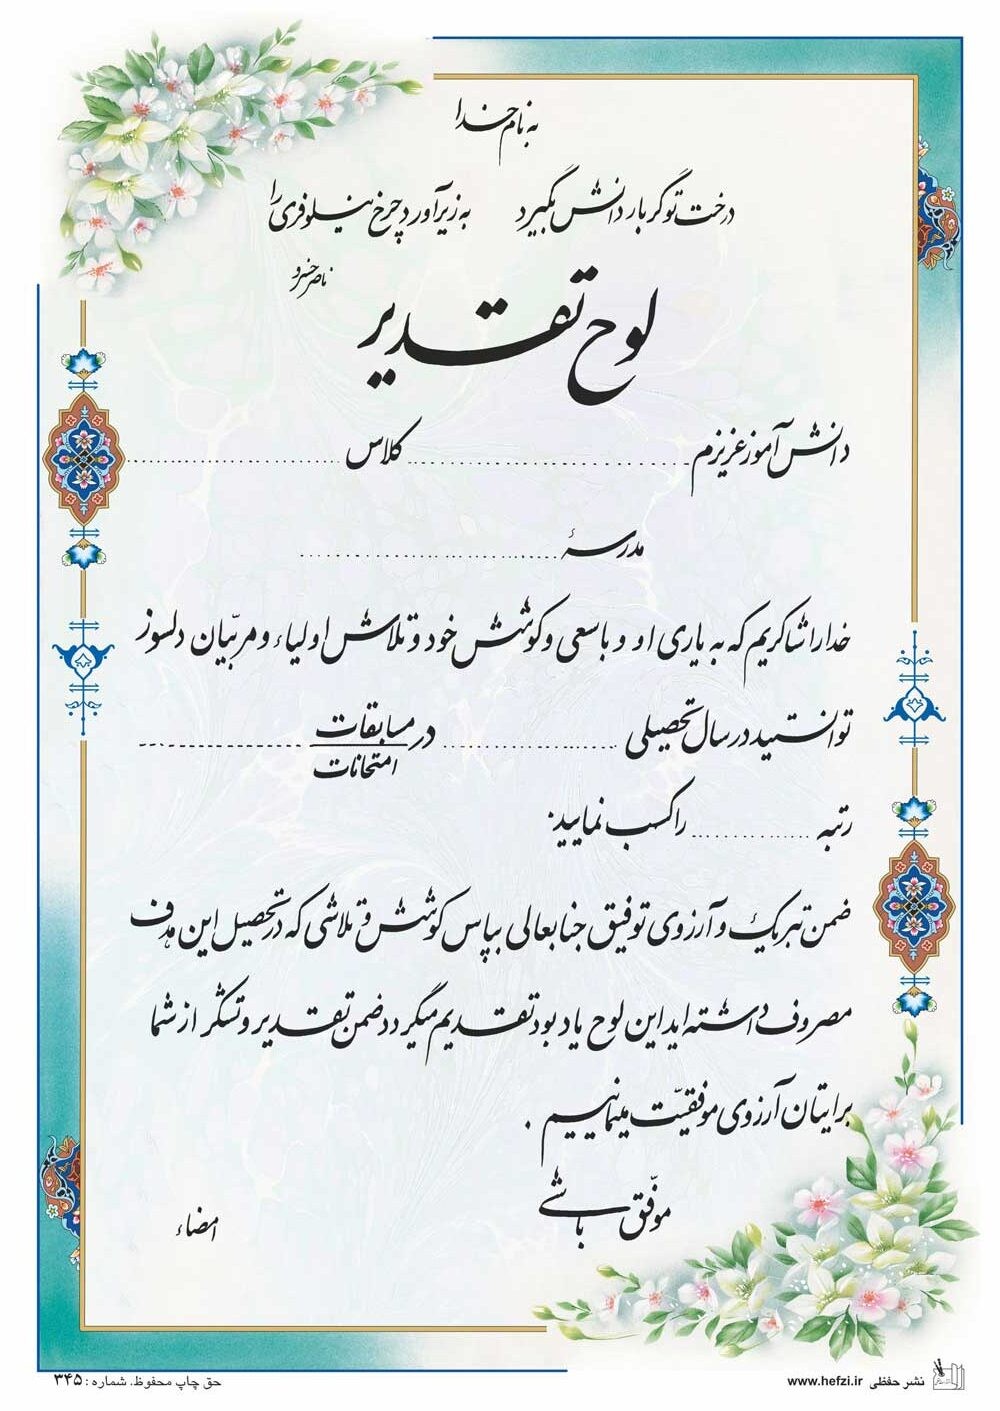 به نام خدا
درخت تو گر بار دانش بگیرد به زیر آورد چرخ نیلوفری را
ناصر خسرو
لوح تقدیر
دانش آموز عزیزم ........................ کلاس ........................
مدرسهٔ ........................
خدا را شاکریم که به یاری او و با سعی و کوشش خود و تلاش اولیاء و مربّیان دلسوز
توانستید در سال تحصیلی ........................ در مسابقات ........................
امتحانات
رتبه ............ را کسب نمایید.
ضمن تبریک و آرزوی توفیق جنابعالی بپاس کوشش و تلاشی که در تحصیل این هدف
مصروف داشته اید این لوح یاد بود تقدیم میگردد ضمن تقدیر و تشکّر از شما
برایتان آرزوی موفقیّت مینمائیم .
موفّق باشی
امضاء
نشر حفظی www.hefzi.ir
حق چاپ محفوظ. شماره: ۳۴۵